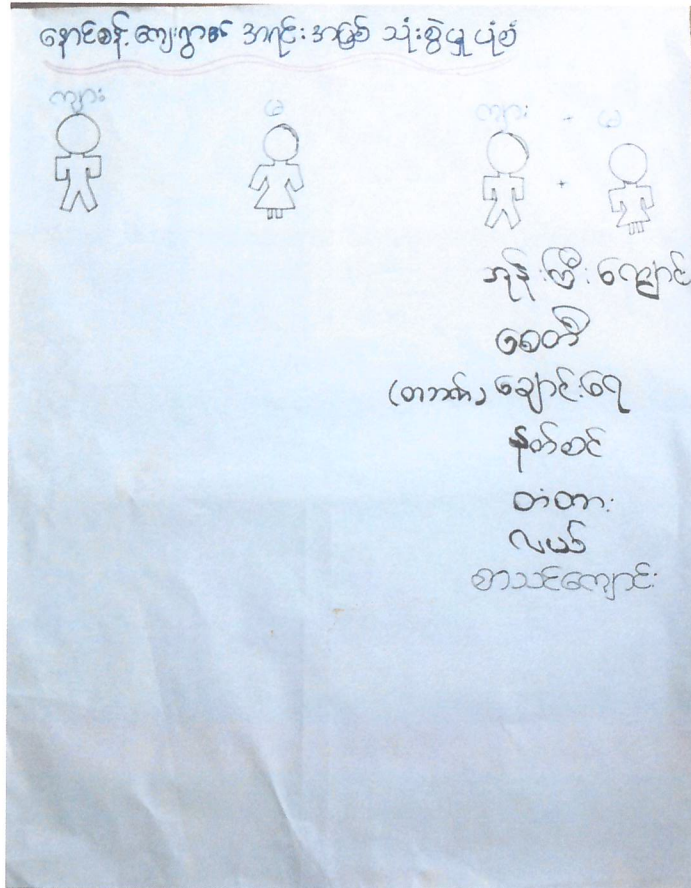 နောင်စန့်ကျေးရွာ၏ အရင်းအမြစ် သုံးစွဲမှု ပုံစံ
ကျား မ ကျား + မ
+
ဘုန်းကြီးကျောင်း
စေတီ
(တဘက်) ချောင်းရေ
နတ်စင်
တံတား
လယ်
စာသင်ကျောင်း